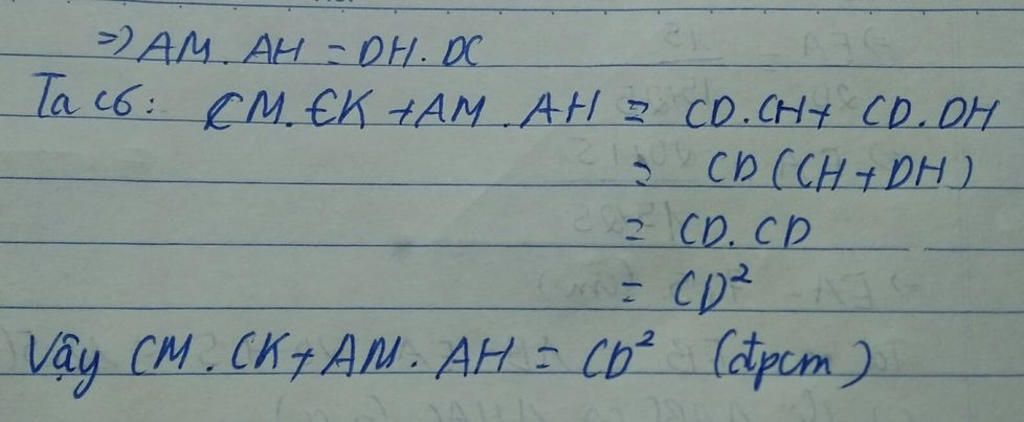 => AM. AH = DH. DC
Ta có: CM. CK + AM. AH = CD. CH + CD. DH
= CD (CH + DH)
= CD. CD
= CD²
Vậy CM. CK + AM. AH = CD² (đpcm)